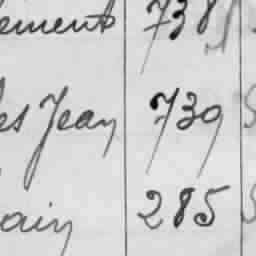 ement 738
es Jean 739
ain 285